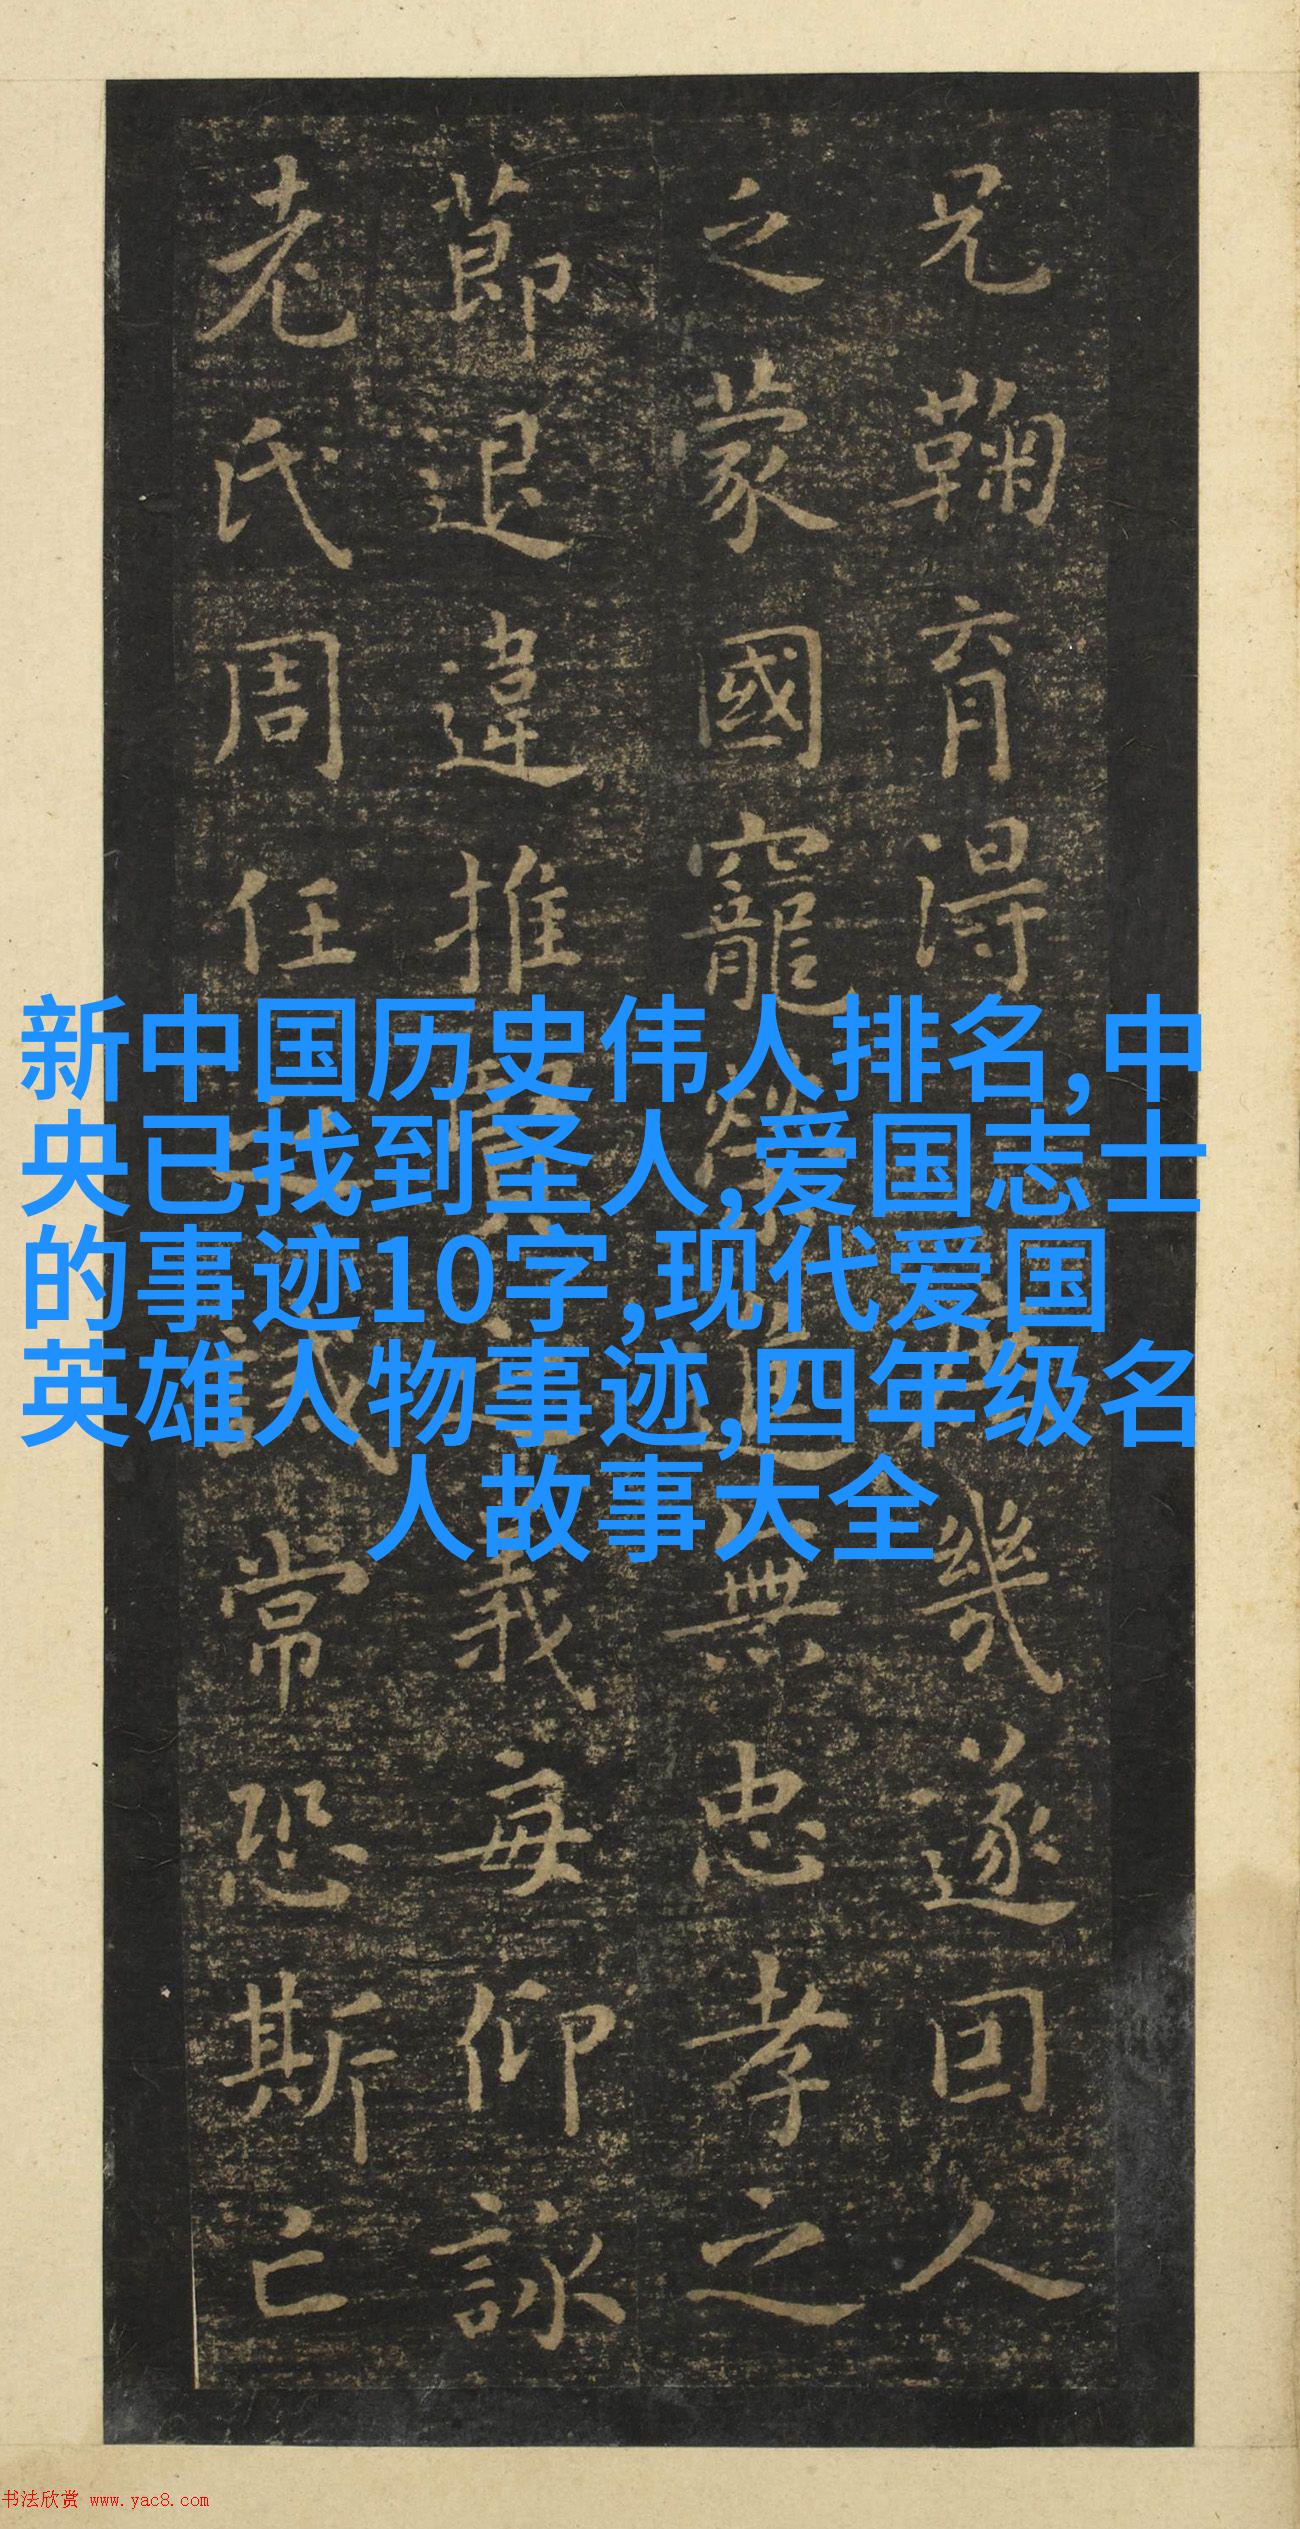 兄鞠育得幾遂回人
之蒙國寵榮進無忠孝之
莭退違推賢之義每仰詠
老氏周任之誡常恐斯亡
新中国历史伟人排名,中
央已找到圣人,爱国志士
的事迹10字,现代爱国
英雄人物事迹,四年级名
人故事大全
书法欣赏 www.yac8.com